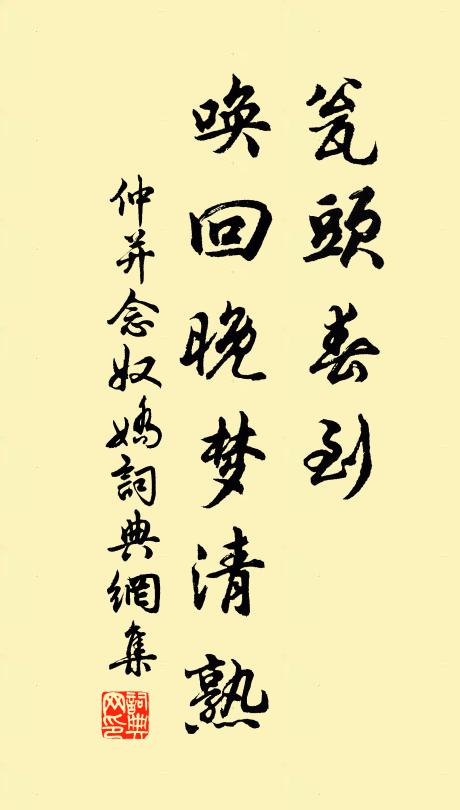 瓮頭春到
唤回晚梦清熟
仲并念奴嬌詞典網集
詞典网印